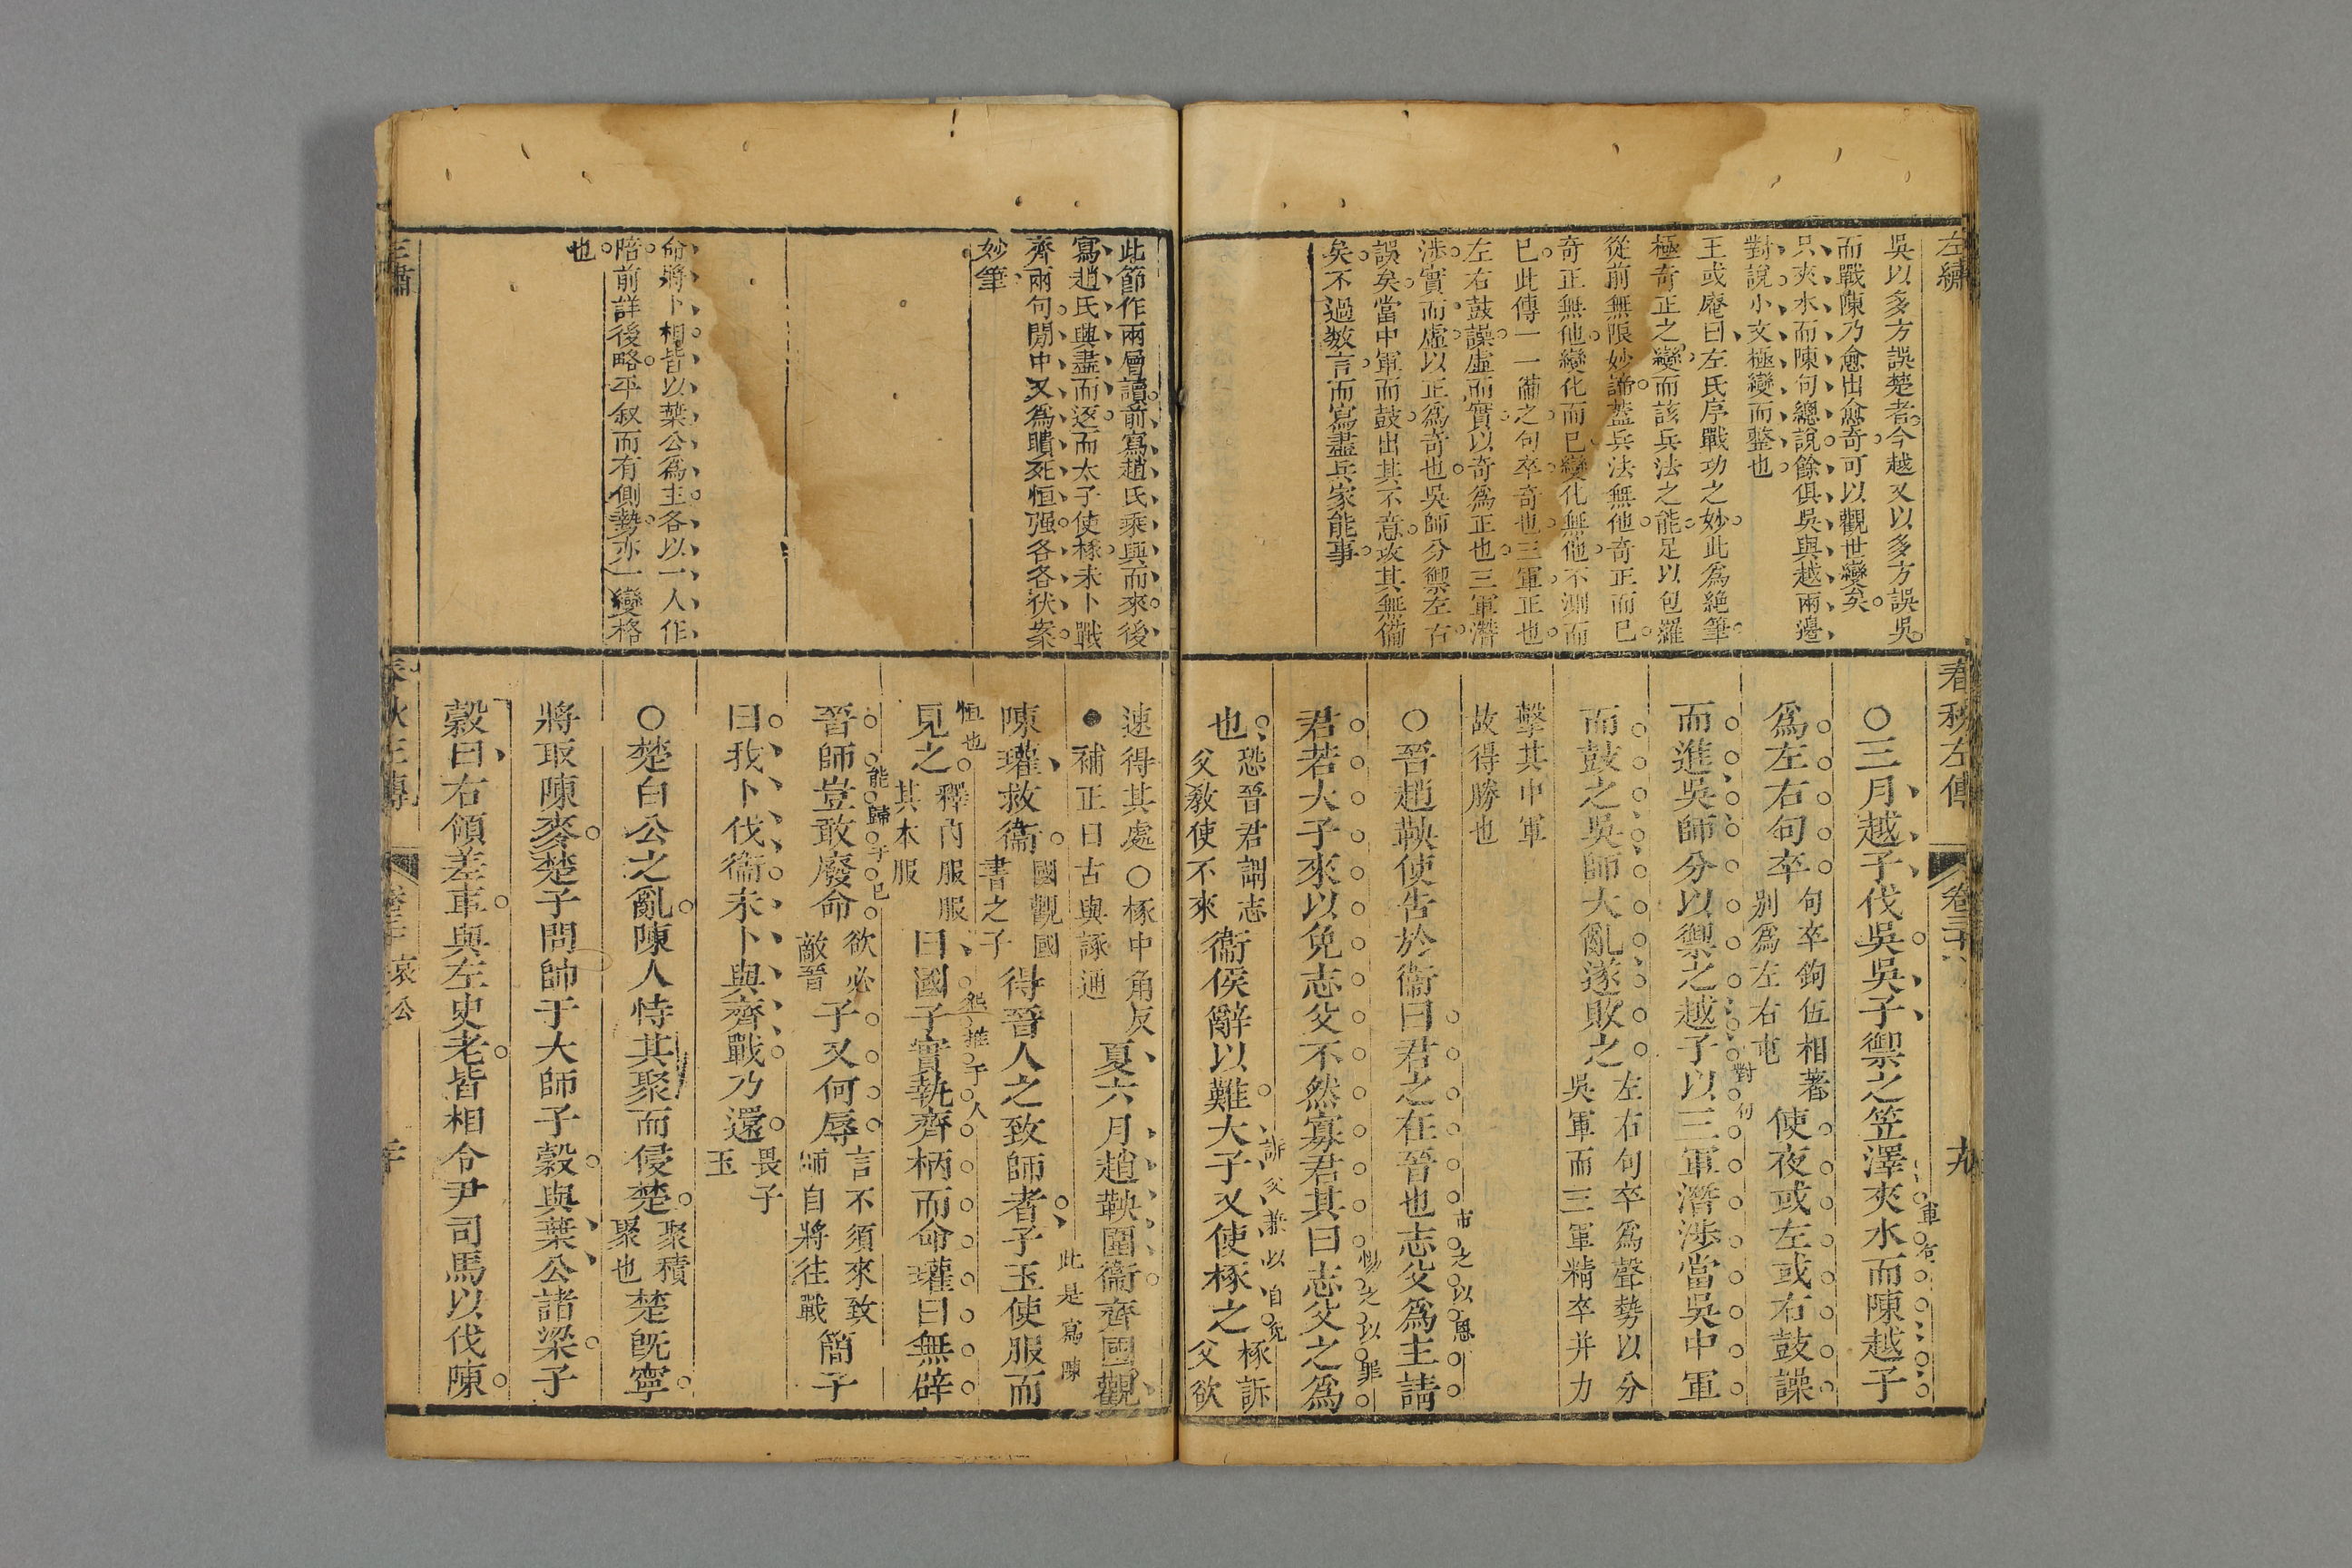 左繡
吳以多方誤楚者今越又以多方誤吳
而戰陳乃愈出愈奇可以觀世變矣
只夾水而陳句總說餘俱吳與越兩邊
對說小文極變而整也
王或庵曰左氏序戰功之妙此爲絶筆
極奇正之變而該兵法之能足以包羅
從前無限妙諦蓋兵法無他奇正而已
奇正無他變化而已變化無他不測而
已此傳一一備之句卒奇也三軍正也
左右鼓譟虛而實以奇爲正也三軍潛
渉實而虛以正爲奇也吳師分禦左右
誤矣當中軍而鼓出其不意攻其無備
矣不過數言而寫盡兵家能事
春秋左傳
○三月越子伐吳吳子禦之笠澤夾水而陳越子
爲左右句卒
句卒鉤伍相著
別爲左右屯
使夜或左或右鼓譟
而進吳師分以禦之越子以三軍潛渉當吳中軍
對句
而鼓之吳師大亂遂敗之
左右句卒爲聲勢以分
吳軍而三軍精卒并力
擊其中軍
故得勝也
○晉趙鞅使告於衞曰君之在晉也志父爲主請
市之以恩
君若大子來以免志父不然寡君其曰志父之爲
惕之以罪
也
恐晉君謂志
父敎使不來
衞侯辭以難大子又使椓之
訴父兼以自免
椓訴
父欲
此節作兩層讀前寫趙氏乘興而來後
寫趙氏興盡而返而太子使椓未卜戰
齊兩句閒中又爲聵死恒强各各伏案
妙筆
命將卜相皆以葉公爲主各以一人作
陪前詳後略平叙而有側勢亦一變格
也
速得其處○椓中角反
●補正曰古與諑通
夏六月趙鞅圍衞齊國觀
此是寫陳
陳瓘救衞
國觀國
書之子
得晉人之致師者子玉使服而
恒也
見之
釋內服服
其本服
曰國子實執齊柄而命瓘曰無辟
晉師豈敢廢命
欲必
敵晉
子又何辱
言不須來致
師自將往戰
簡子
曰我卜伐衞未卜與齊戰乃還
畏子
玉
○楚白公之亂陳人恃其聚而侵楚
聚積
聚也
楚旣寧
將取陳麥楚子問帥于大師子穀與葉公諸梁子
穀曰右領差車與左史老皆相令尹司馬以伐陳
哀公